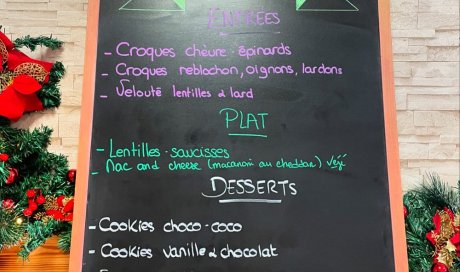 ENTRÉES
- Croques chèvre - épinards
- Croques reblochon, oignons, lardons
- Velouté lentilles & lard
PLAT
- Lentilles - saucisses
- Mac and cheese (macaroni au cheddar) végé
DESSERTS
- Cookies choco - coco
- Cookies vanille & chocolat